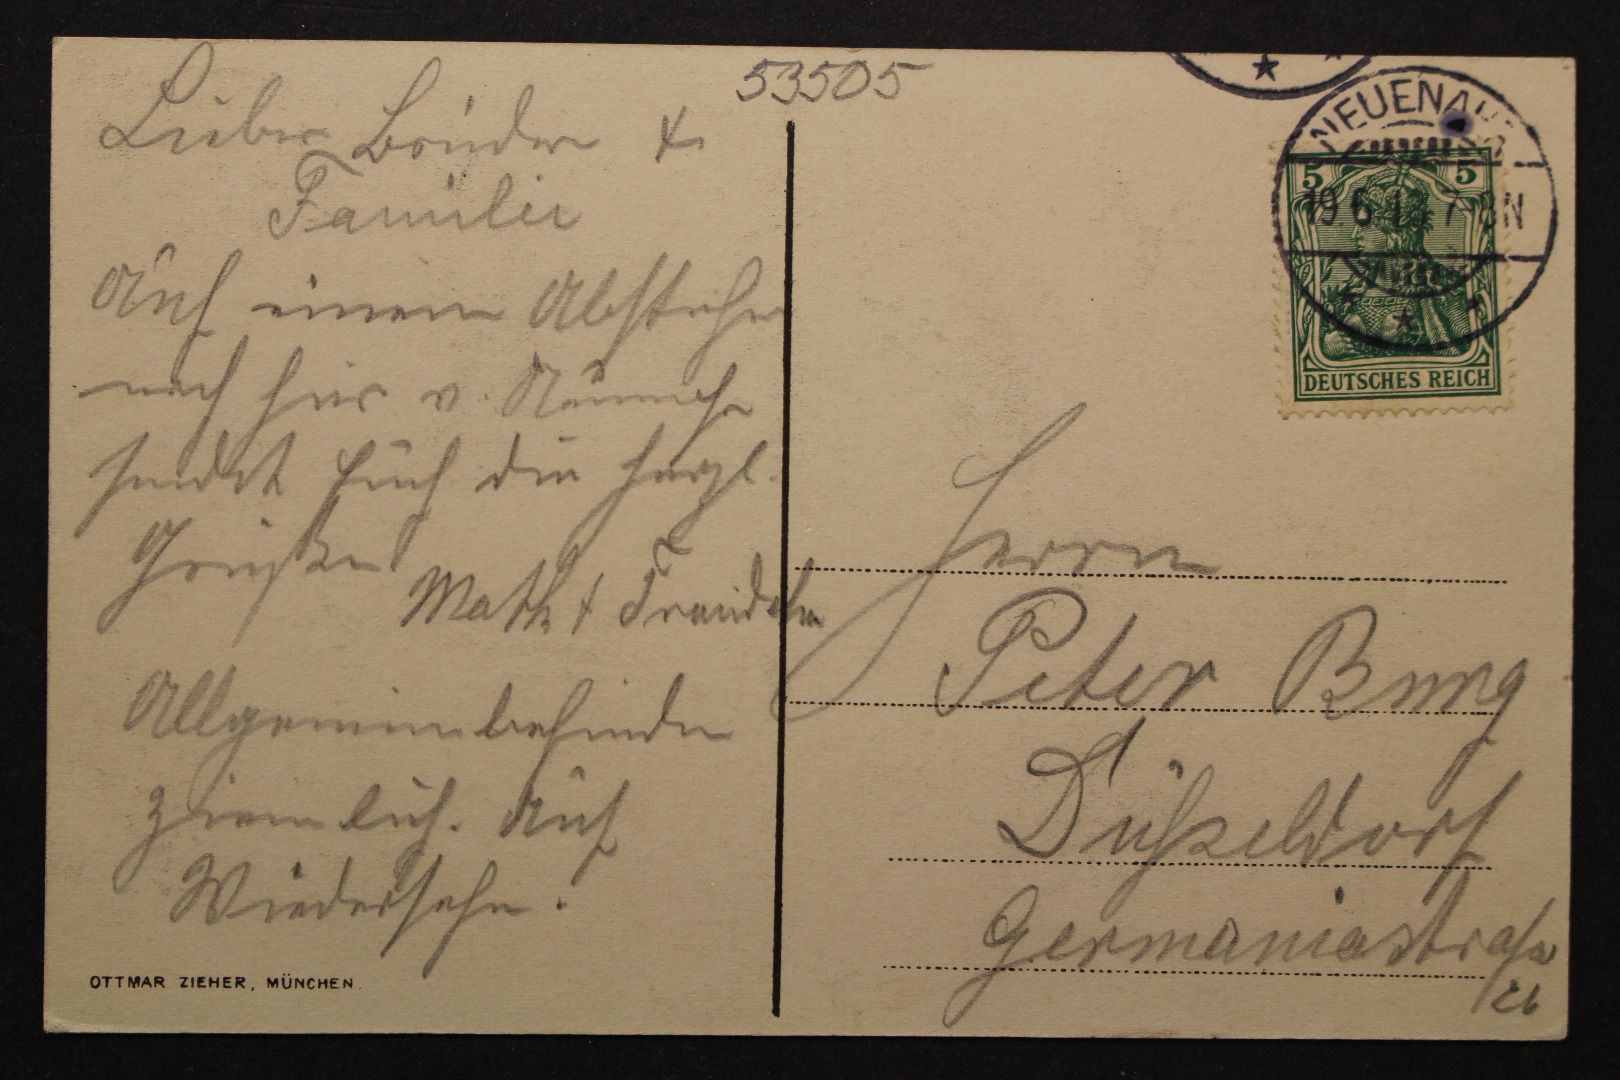 53505
Lieber Bruder &
Familie
Auf einem Abstecher
nach hier v.
sendet Euch die herzl.
Grüße
Math &
Allgemeinbefinden
ziemlich. Auf
Wiedersehn.
OTTMAR ZIEHER, MÜNCHEN
NEUENAHR
19 6 13 7-8N
5 5
DEUTSCHES REICH
Herrn
Peter Bung
Düsseldorf
Germaniastraße
26